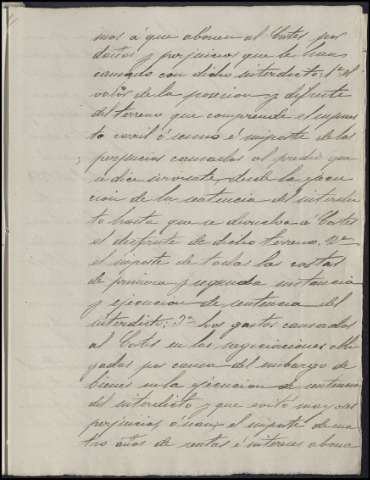 mos á que abonen al Cotes por
daños y perjuicios que le han
causado con dicho interdicto: 1º el
valor de la posesion y disfrute
del terreno que comprende el supues
to carril ó sea el importe de los
perjuicios causados al predio que
se dice sirviente, desde la ejecu
cion de la sentencia del interdic
to hasta que se devuelva á Cotes
el disfrute de dicho terreno, 2º
el importe de todas las costas
de primera y segunda instancia
y ejecucion de sentencia del
interdicto; 3º los gastos causados
al Cotes en las negociaciones obli
gadas por causa del embargo de
bienes en la ejecucion de sentencia
del interdicto y que evitó mayores
perjuicios ó sean el importe de cua
tro años de rentas é intereses abona